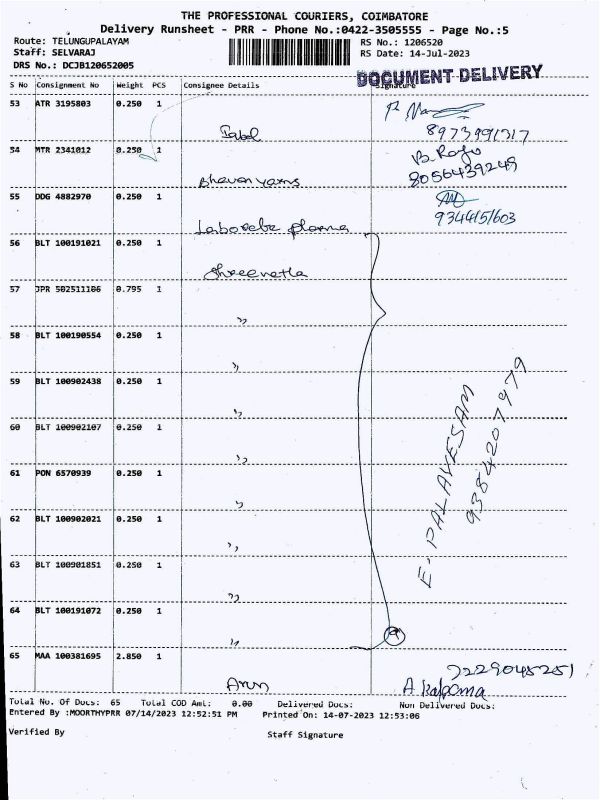 THE PROFESSIONAL COURIERS, COIMBATORE
Delivery Runsheet - PRR - Phone No.:0422-3505555 - Page No.:5
Route: TELUNGUPALAYAM RS No.: 1206520
Staff: SELVARAJ RS Date: 14-Jul-2023
DRS No.: DCJB120652005
DOCUMENT DELIVERY
S No Consignment No Weight PCS Consignee Details Signature
53 ATR 3195803 0.250 1
8973991317
54 MTR 2341012 0.250 1
B. Raju
8056439249
Bhavan yarns
55 DDG 4882970 0.250 1
9344151603
56 BLT 100191021 0.250 1
Shreenetha
57 JPR 502511106 0.795 1
"
58 BLT 100190554 0.250 1
"
59 BLT 100902438 0.250 1
"
60 BLT 100902107 0.250 1
"
61 PON 6570939 0.250 1
"
62 BLT 100902021 0.250 1
"
63 BLT 100901851 0.250 1
"
64 BLT 100191072 0.250 1
"
E. PALAVESAM
9384207979
65 MAA 100381695 2.850 1
7229045251
Arun A. Kalpana
Total No. Of Docs: 65 Total COD Amt: 0.00 Delivered Docs: Non Delivered Docs:
Entered By :MOORTHYPRR 07/14/2023 12:52:51 PM Printed On: 14-07-2023 12:53:06
Verified By Staff Signature